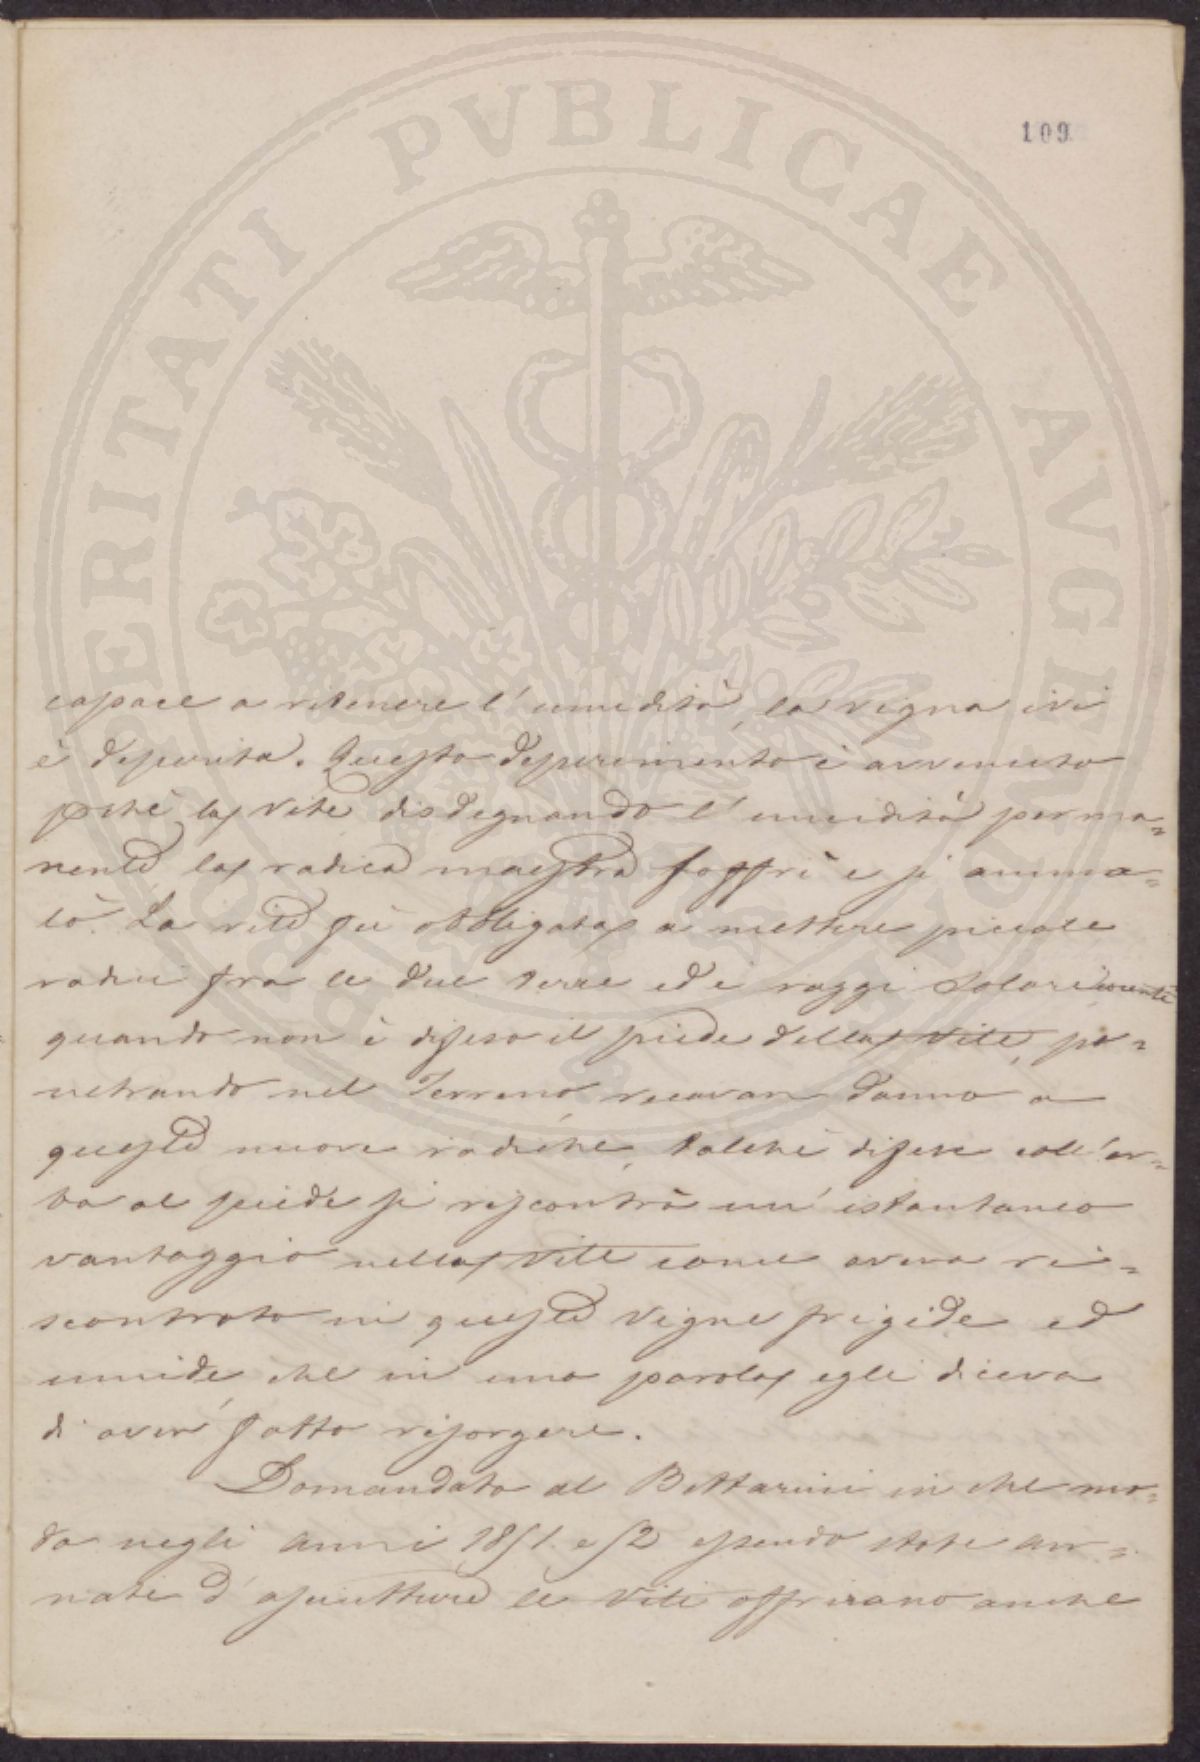 109
PROSPERITATI PUBLICAE AVGENDAE
capace a ritenere l'umidità, la vigna ivi
è deperita. Questo deperimento è avvenuto
pchè la vite disdegnando l'umidità perma=
nente la radica maestra soffrì e si amma=
lò. La vite fù obbligata a mettere piccole
radici fra le due terre ed i raggi Solari cocenti
quando non è difeso il piede della Vite, pe=
netrando nel Terreno, recavan danno a
queste nuove radiche, talchè difese coll'er=
ba al piede si riscontrò un'istantaneo
vantaggio nella Vite come aveva ri=
scontrato in queste Vigne frigide ed
umide, che in una parola egli diceva
di aver fatto risorgere.
Domandato al Bettarini in che mo=
do negli anni 1851. e 52 essendo state an=
nate d'asciutture le Viti offrirano anche